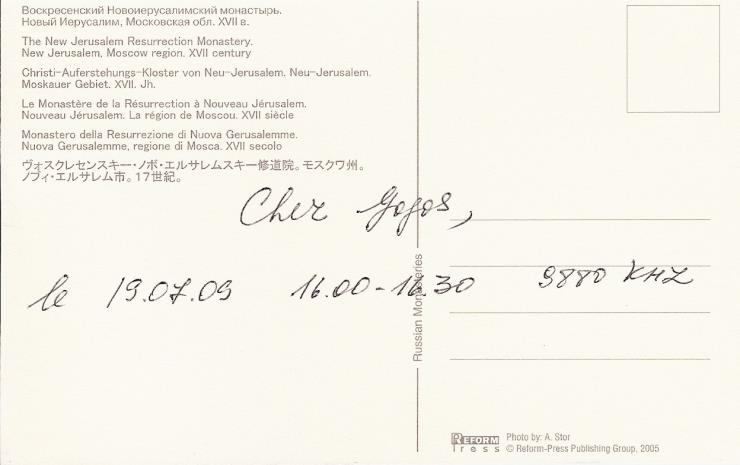 Воскресенский Новоиерусалимский монастырь.
Новый Иерусалим, Московская обл. XVII в.
The New Jerusalem Resurrection Monastery.
New Jerusalem, Moscow region. XVII century
Christi-Auferstehungs-Kloster von Neu-Jerusalem. Neu-Jerusalem.
Moskauer Gebiet. XVII. Jh.
Le Monastère de la Résurrection à Nouveau Jérusalem.
Nouveau Jérusalem. La région de Moscou. XVII siècle
Monastero della Resurrezione di Nuova Gerusalemme.
Nuova Gerusalemme, regione di Mosca. XVII secolo
ヴォスクレセンスキー・ノボ・エルサレムスキー修道院。モスクワ州。
ノヴィ・エルサレム市。17世紀。
Cher Gogos,
le 19.07.09 16.00-16.30 9880 KHZ
Russian Monasteries
REFORM
Press
Photo by: A. Stor
© Reform-Press Publishing Group, 2005